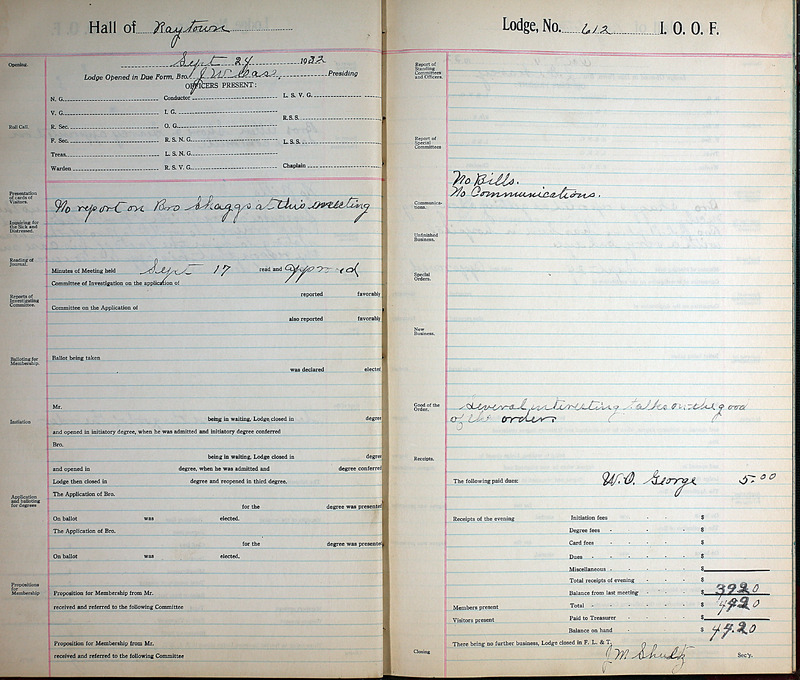 Hall of Raytown
Sept 24 1932
Opening.
Lodge Opened in Due Form, Bro. J W Presiding
OFFICERS PRESENT:
N. G. Conductor L. S. V. G.
V. G. I. G. R. S. S.
Roll Call.
R. Sec. O. G.
F. Sec. R. S. N. G. L. S. S.
Treas. L. S. N. G.
Warden R. S. V. G. Chaplain
Presentation of cards of Visitors.
No report on Bro Skaggs at this meeting
Inquiring for the Sick and Distressed.
Reading of Journal.
Minutes of Meeting held Sept 17 read and approved
Committee of Investigation on the application of
reported favorably
Reports of Investigating Committee.
Committee on the Application of
also reported favorably
Balloting for Membership.
Ballot being taken
was declared elected
Mr.
being in waiting, Lodge closed in degree
Initiation
and opened in initiatory degree, when he was admitted and initiatory degree conferred
Bro.
being in waiting, Lodge closed in degree
and opened in degree, when he was admitted and degree conferred
Lodge then closed in degree and reopened in third degree.
Application and balloting for degrees
The Application of Bro.
for the degree was presented
On ballot was elected.
The Application of Bro.
for the degree was presented
On ballot was elected.
Propositions for Membership
Proposition for Membership from Mr.
received and referred to the following Committee
Proposition for Membership from Mr.
received and referred to the following Committee
Lodge, No. 612 I. O. O. F.
Report of Standing Committees and Officers.
Report of Special Committees
No Bills.
No Communications.
Communications.
Unfinished Business.
Special Orders.
New Business.
Good of the Order.
Several interesting talks on the good
of the order.
Receipts.
The following paid dues: W. O. George 5.00
Receipts of the evening Initiation fees $
Degree fees $
Card fees $
Dues $
Miscellaneous $
Total receipts of evening $
Balance from last meeting $ 3920
Members present Total $
Visitors present Paid to Treasurer $
Balance on hand $ 44.20
Closing
There being no further business, Lodge closed in F. L. & T.
J M Shultz Sec'y.